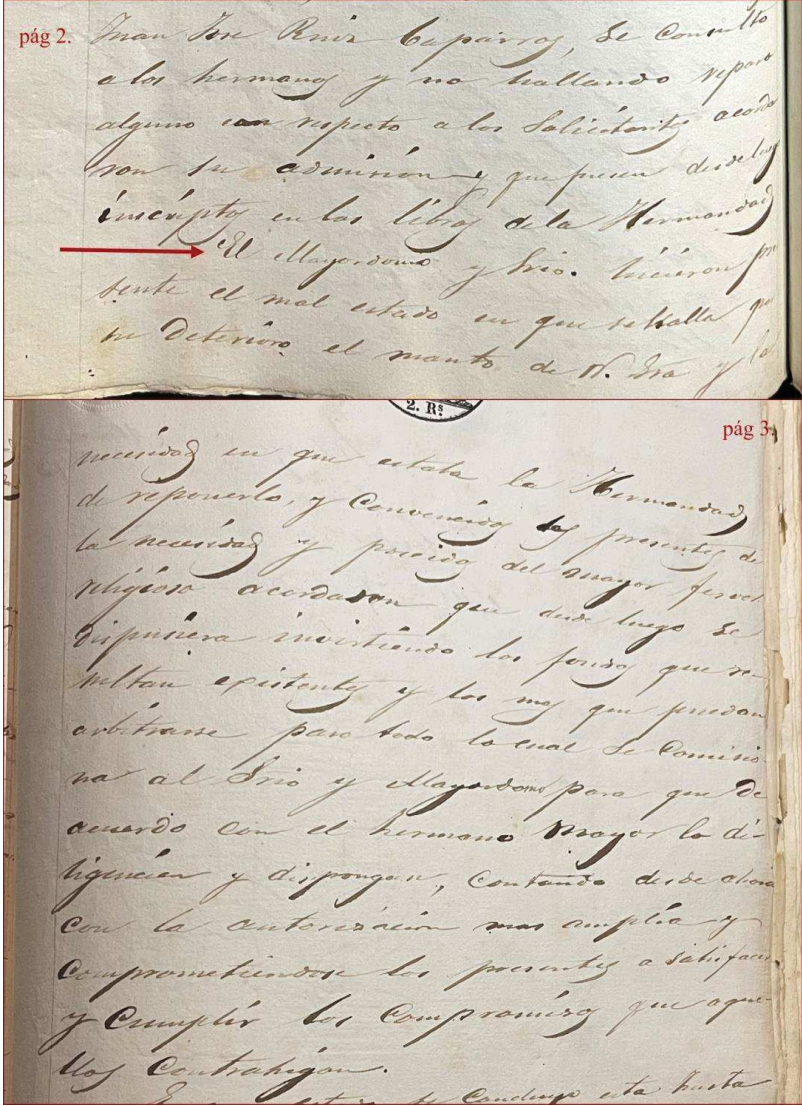 pág 2.
Juan Jose Ruiz Caparros, se consulto
a los hermanos y no hallando reparo
alguno con respecto a los Solicitantes acorda
ron su admision y que fuesen desde luego
inscriptos en los libros de la Hermandad
El Mayordomo y Srio. hicieron pre
sente el mal estado en que se halla por
su deterioro el manto de N. Sra y la
2. Rs
pág 3.
necesidad en que estaba la Hermandad
de reponerlo, y Convencidos los presentes de
la necesidad y poseidos del mayor fervor
religioso acordaron que desde luego se
dispusiera invirtiendo los fondos que re-
sultan existentes y los mas que puedan
arbitrarse para todo lo cual se Comisio
na al Srio y Mayordomo para que de
acuerdo con el hermano Mayor lo di-
ligencien y dispongan, Contando desde ahora
con la autorizacion mas amplia y
Comprometiendose los presentes a satisfacer
y Cumplir los Compromisos que aque-
llos Contrahigan.
se Condujo esta hasta